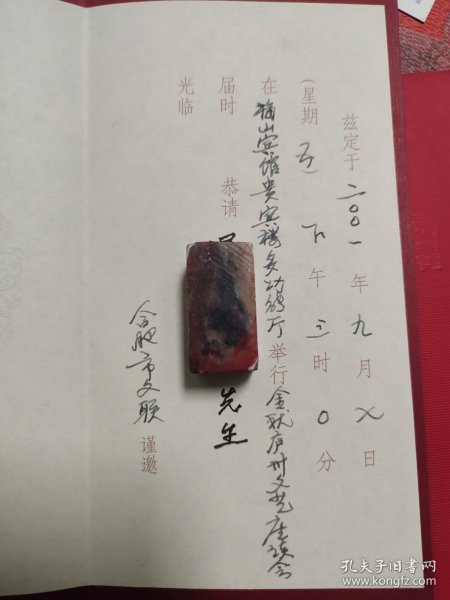 兹定于二〇〇一年九月七日
（星期五）下午三时0分
在梅山宾馆贵宾楼多功能厅举行金秋庐州文艺座谈会
届时 恭请 先生
光临
合肥市文联 谨邀
孔夫子旧书网
www.kongfz.com